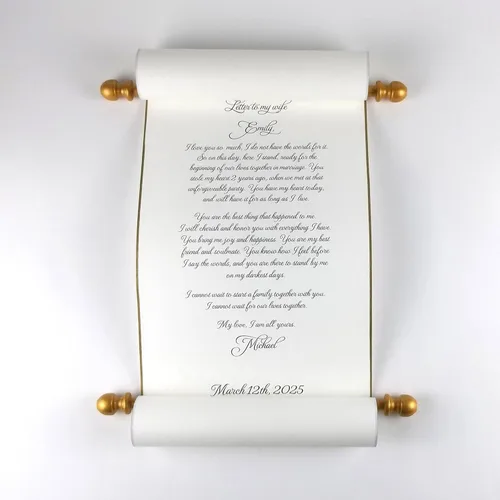 Letter to my wife
Emily,
I love you so much, I do not have the words for it.
So on this day, here I stand, ready for the
beginning of our lives together in marriage. You
stole my heart 2 years ago, when we met as that
unforgivable party. You have my heart today,
and will have it for as long as I live.
You are the best thing that happened to me.
I will cherish and honor you with everything I have.
You bring me joy and happiness. You are my best
friend and soulmate. You know how I feel before
I say the words, and you are there to stand by me
on my darkest days.
I cannot wait to start a family together with you.
I cannot wait for our lives together.
My love, I am all yours.
Michael
March 12th, 2025